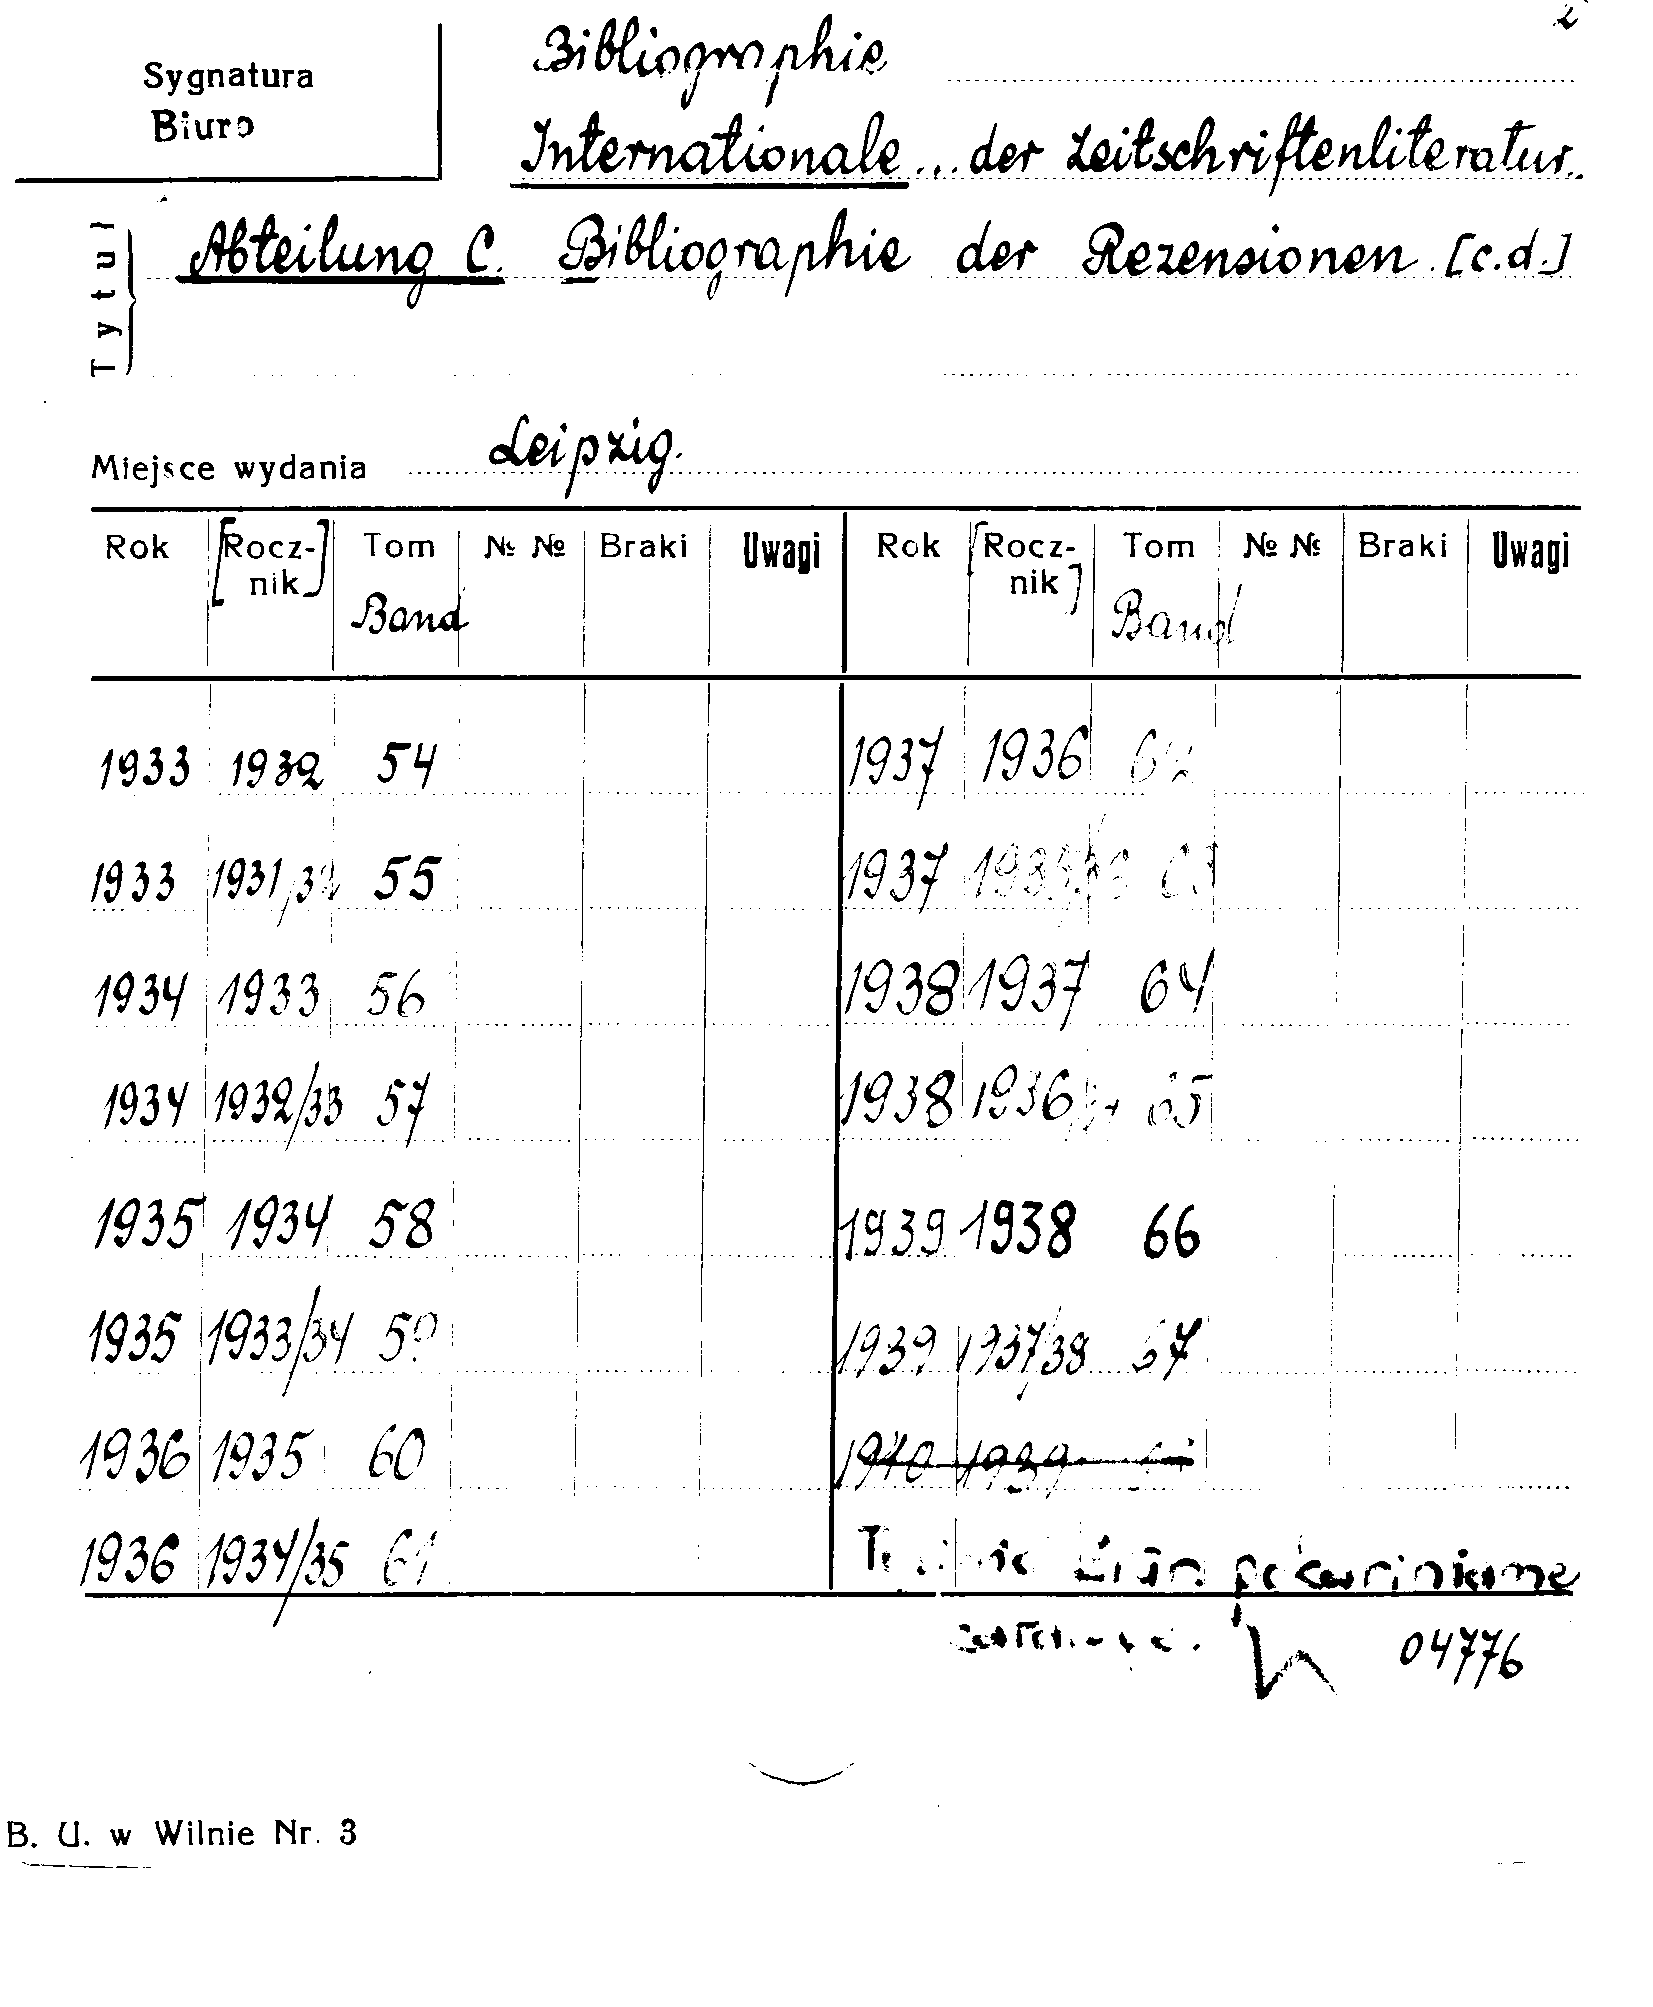 2
Sygnatura
Biuro
Bibliographie
Internationale ... der Zeitschriftenliteratur.
Tytuł
Abteilung C. Bibliographie der Rezensionen [c.d.]
Miejsce wydania Leipzig.
Rok [Rocz- Tom № № Braki Uwagi Rok [Rocz- Tom № № Braki Uwagi
nik] nik]
Band Band
1933 1932 54 1937 1936 62
1933 1931/32 55 1937
1934 1933 56 1938 1937 64
1934 1932/33 57 1938 1936 65
1935 1934 58 1939 1938 66
1935 1933/34 59 1939 1937/38 67
1936 1935 60 1940 1939
1936 1934/35 61
04776
B. U. w Wilnie Nr. 3